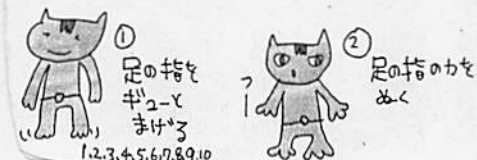 ①
足の指を
ギューと
まげる
1.2.3.4.5.6.7.8.9.10
②
足の指の力を
ぬく